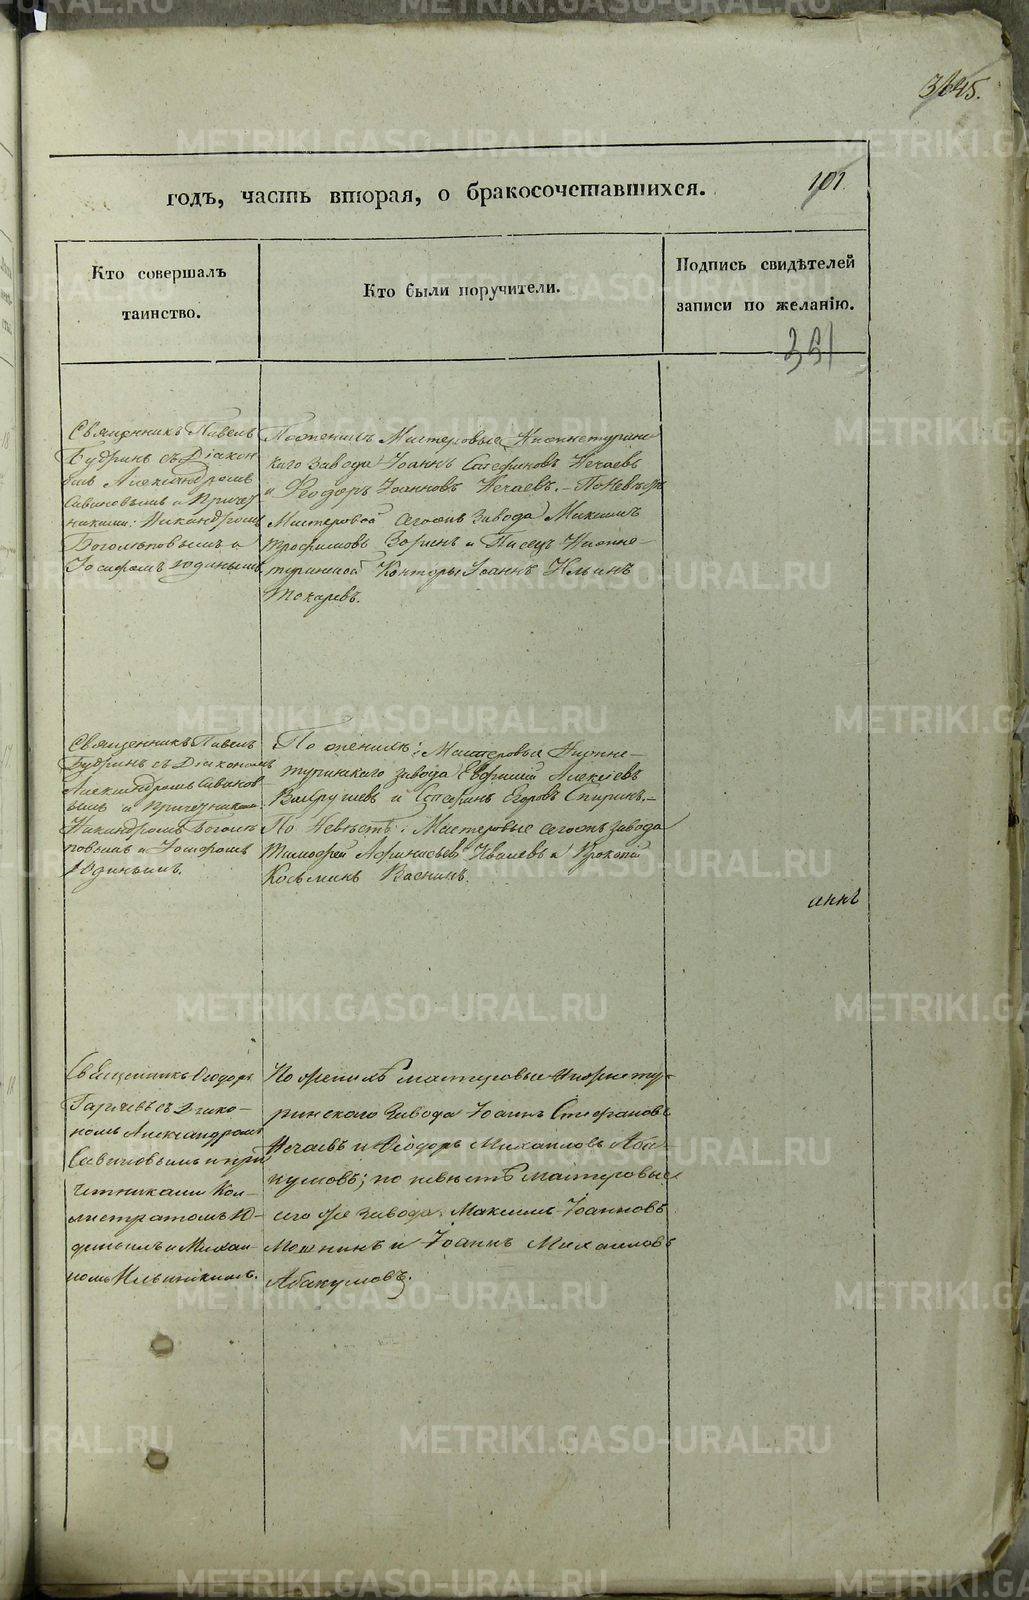 годъ, часть вторая, о бракосочетавшихся.
101
Кто совершалъ
таинство.
Кто были поручители.
Подпись свидѣтелей
записи по желанію.
Священникъ Павелъ
Будринъ съ Діакон
омъ Александромъ
Сивиновымъ и Причет
никами: Никандромъ
Боголѣповымъ и
Іосифомъ Юдинымъ
По женихѣ Мастеровые Нижнетурин
скаго Завода Іоаннъ Стефановъ Нечаевъ
и Феодоръ Іоанновъ Нечаевъ. – По Невѣстѣ
Мастеровой сегоже Завода Максимъ
Трофимовъ Зоринъ и Писецъ Нижне-
туринской Конторы Іоаннъ Ильинъ
Токаревъ.
Священникъ Павелъ
Будринъ съ Діакономъ
Александромъ Сивинов
ымъ и Причетниками
Никандромъ Боголѣ
повымъ и Іосифомъ
Юдинымъ.
По женихѣ: Мастеровые Нижне-
туринскаго завода Евфимій Алексѣевъ
и Стефанъ Егоровъ Спиринъ. –
По Невѣстѣ: Мастеровые сегоже завода
Тимофей Афанасьевъ Ивачевъ и Прокопій
Козьминъ
аннъ
Священникъ Феодоръ
съ Діако-
номъ Александромъ
Сивиновымъ и при
четниками Кал-
листратомъ Ю-
динымъ и Михаи
ломъ Ильинскимъ.
По женихѣ мастеровые Нижнету-
ринскаго Завода Іоаннъ Стефановъ
Нечаевъ и Феодоръ Михаиловъ Аба-
кумовъ; по невѣстѣ мастеровые
сего же завода: Максимъ Іоанновъ
Мошнинъ и Іоаннъ Михаиловъ
Абакумовъ.
METRIKI.GASO-URAL.RU